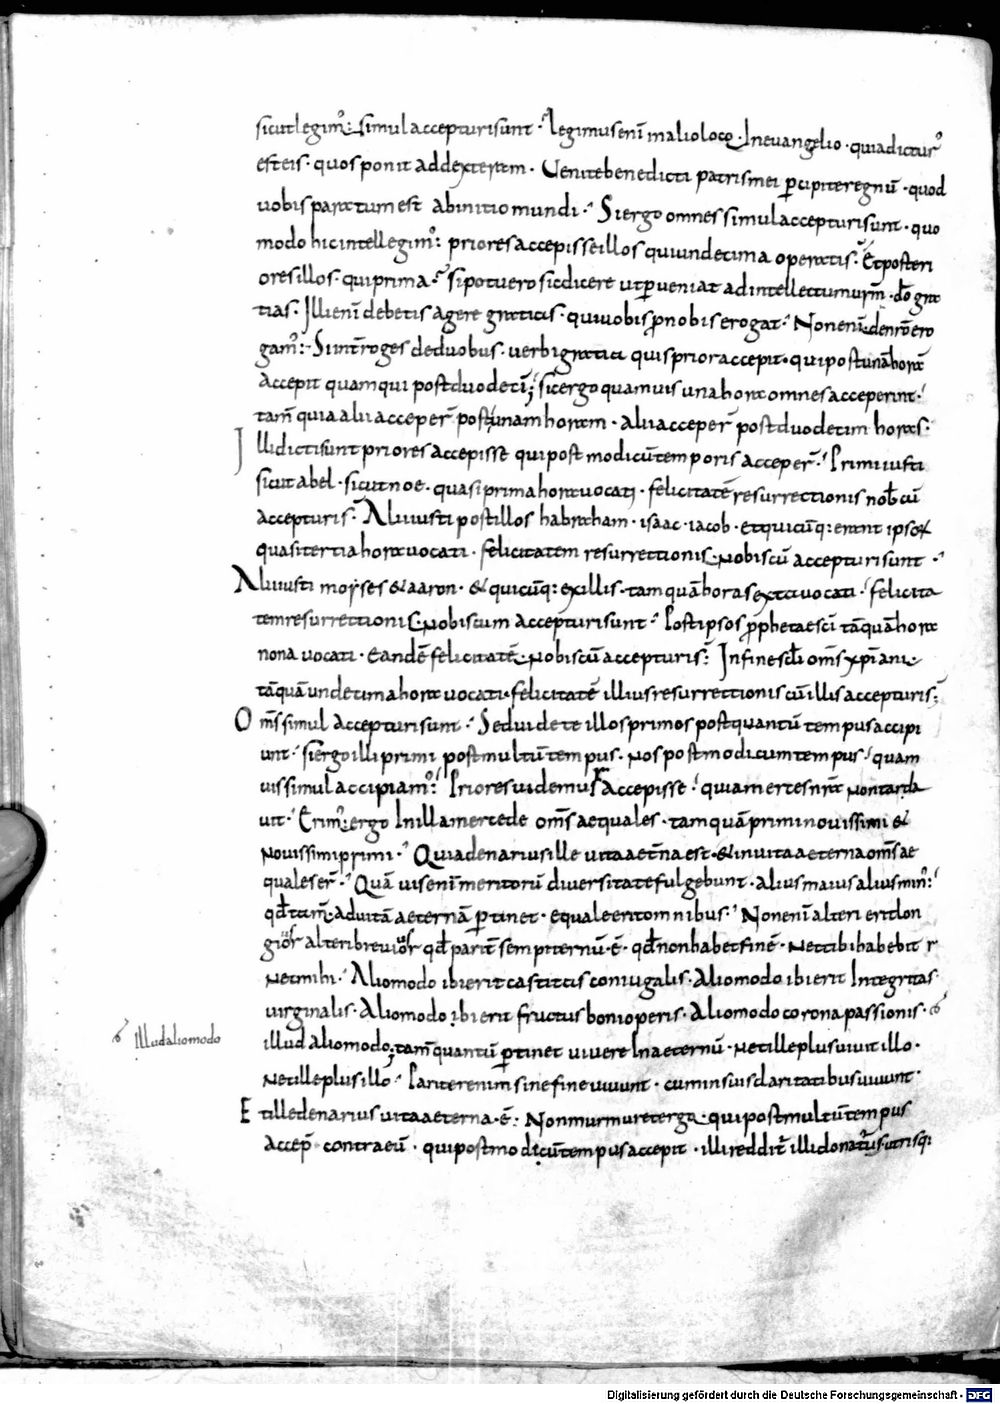 sicut legim᾽: simul accepturi sunt · legimus enī in alio loco · In evangelio · quia dictur᾽
est eis · quos ponit ad dexteram · Uenite benedicti patris mei pcipite regnū · quod
uobis paratum est ab initio mundi · Si ergo omnes simul accepturi sunt · quo
modo hic intellegim᾽: priores accepisse illos qui undecima operatis · Et posteri
ores illos · qui prima · si potuero sic dicere ut pueniat ad intellectum urm̄ · dō gra
tias · Illi enī debetis agere gratias · qui uobis p nobis erogat · Non enī de nrō ero
gam᾽: Si interroges de duobus · uerbi gratia quis prior accepit · qui post unā horā
accepit quam qui post duodeci; sic ergo quamuis una hora omnes acceperint ·
tam̄ quia alii acceper̄ post unam horam · alii acceper̄ post duodecim horas ·
Illi dicti sunt priores accepisse qui post modicū temporis acceper̄ · Primi iusti
sicut abel · sicut noe · quasi prima hora uocati · felicitatē resurrectionis nob̄cū
accepturi s̄ · Alii iusti post illos habraham · isaac · iacob · et quicūq: erant ipso
quasi tertia hora uocati · felicitatem resurrectionis nobiscū accepturi sunt ·
Alii iusti moyses & aaron · & quicūq: ex illis · tamquā hora sexta uocati · felicita
tem resurrectionis nobiscum accepturi sunt · Post ipsos pphetae scī tāquā hora
nona uocati · eandē felicitatē nobiscū accepturi s̄: In fine scl̄i om̄s xp̄iani
tāquā undecima hora uocati · felicitatē illius resurrectionis cū illis accepturi s̄;
Om̄s simul accepturi sunt · Sed uidete illos primos post quantū tempus accipi
unt · si ergo illi primi post multū tempus · nos post modicum tempus · quam
uis simul accipiam᾽: Priores uidemur accepisse · quia merces nr̄a non tarda
uit · Erim᾽ ergo In illa mercede om̄s aequales · tamquā primi nouissimi &
nouissimi primi · Quia denarius ille uita aet̄na est · & in uita aeterna om̄s ae
quales er̄ · Quā uis enī meritorū diuersitate fulgebunt · alius maius alius min᾽:
qd̄ tam̄ · ad uitā aeternā ptinet · equale erit omnibus · Non enī alteri erit lon
gior alteri breuior qd̄ parit̄ sempiternū · ē · qd̄ non habet finē · nec tibi habebit
nec mihi · Alio modo ibi erit castitas coniugalis · Alio modo ibi erit Integritas
uirginalis · Alio modo ibi erit fructus boni operis · Alio modo corona passionis ·
illud alio modo; tam̄ quantū ptinet uiuere In aeternū · nec ille plus uiuit illo ·
nec ille plus illo · Pariter enim sine fine uiuunt · cum in suis claritatibus uiuunt ·
Et ille denarius uita aeterna · ē: Non murmuret ergo · qui post multū tempus
accep̄ · contra eū · qui post modicū tempus accepit · illi reddit᾽ illi donatur s; utrisq:
illud alio modo
Digitalisierung gefördert durch die Deutsche Forschungsgemeinschaft - DFG